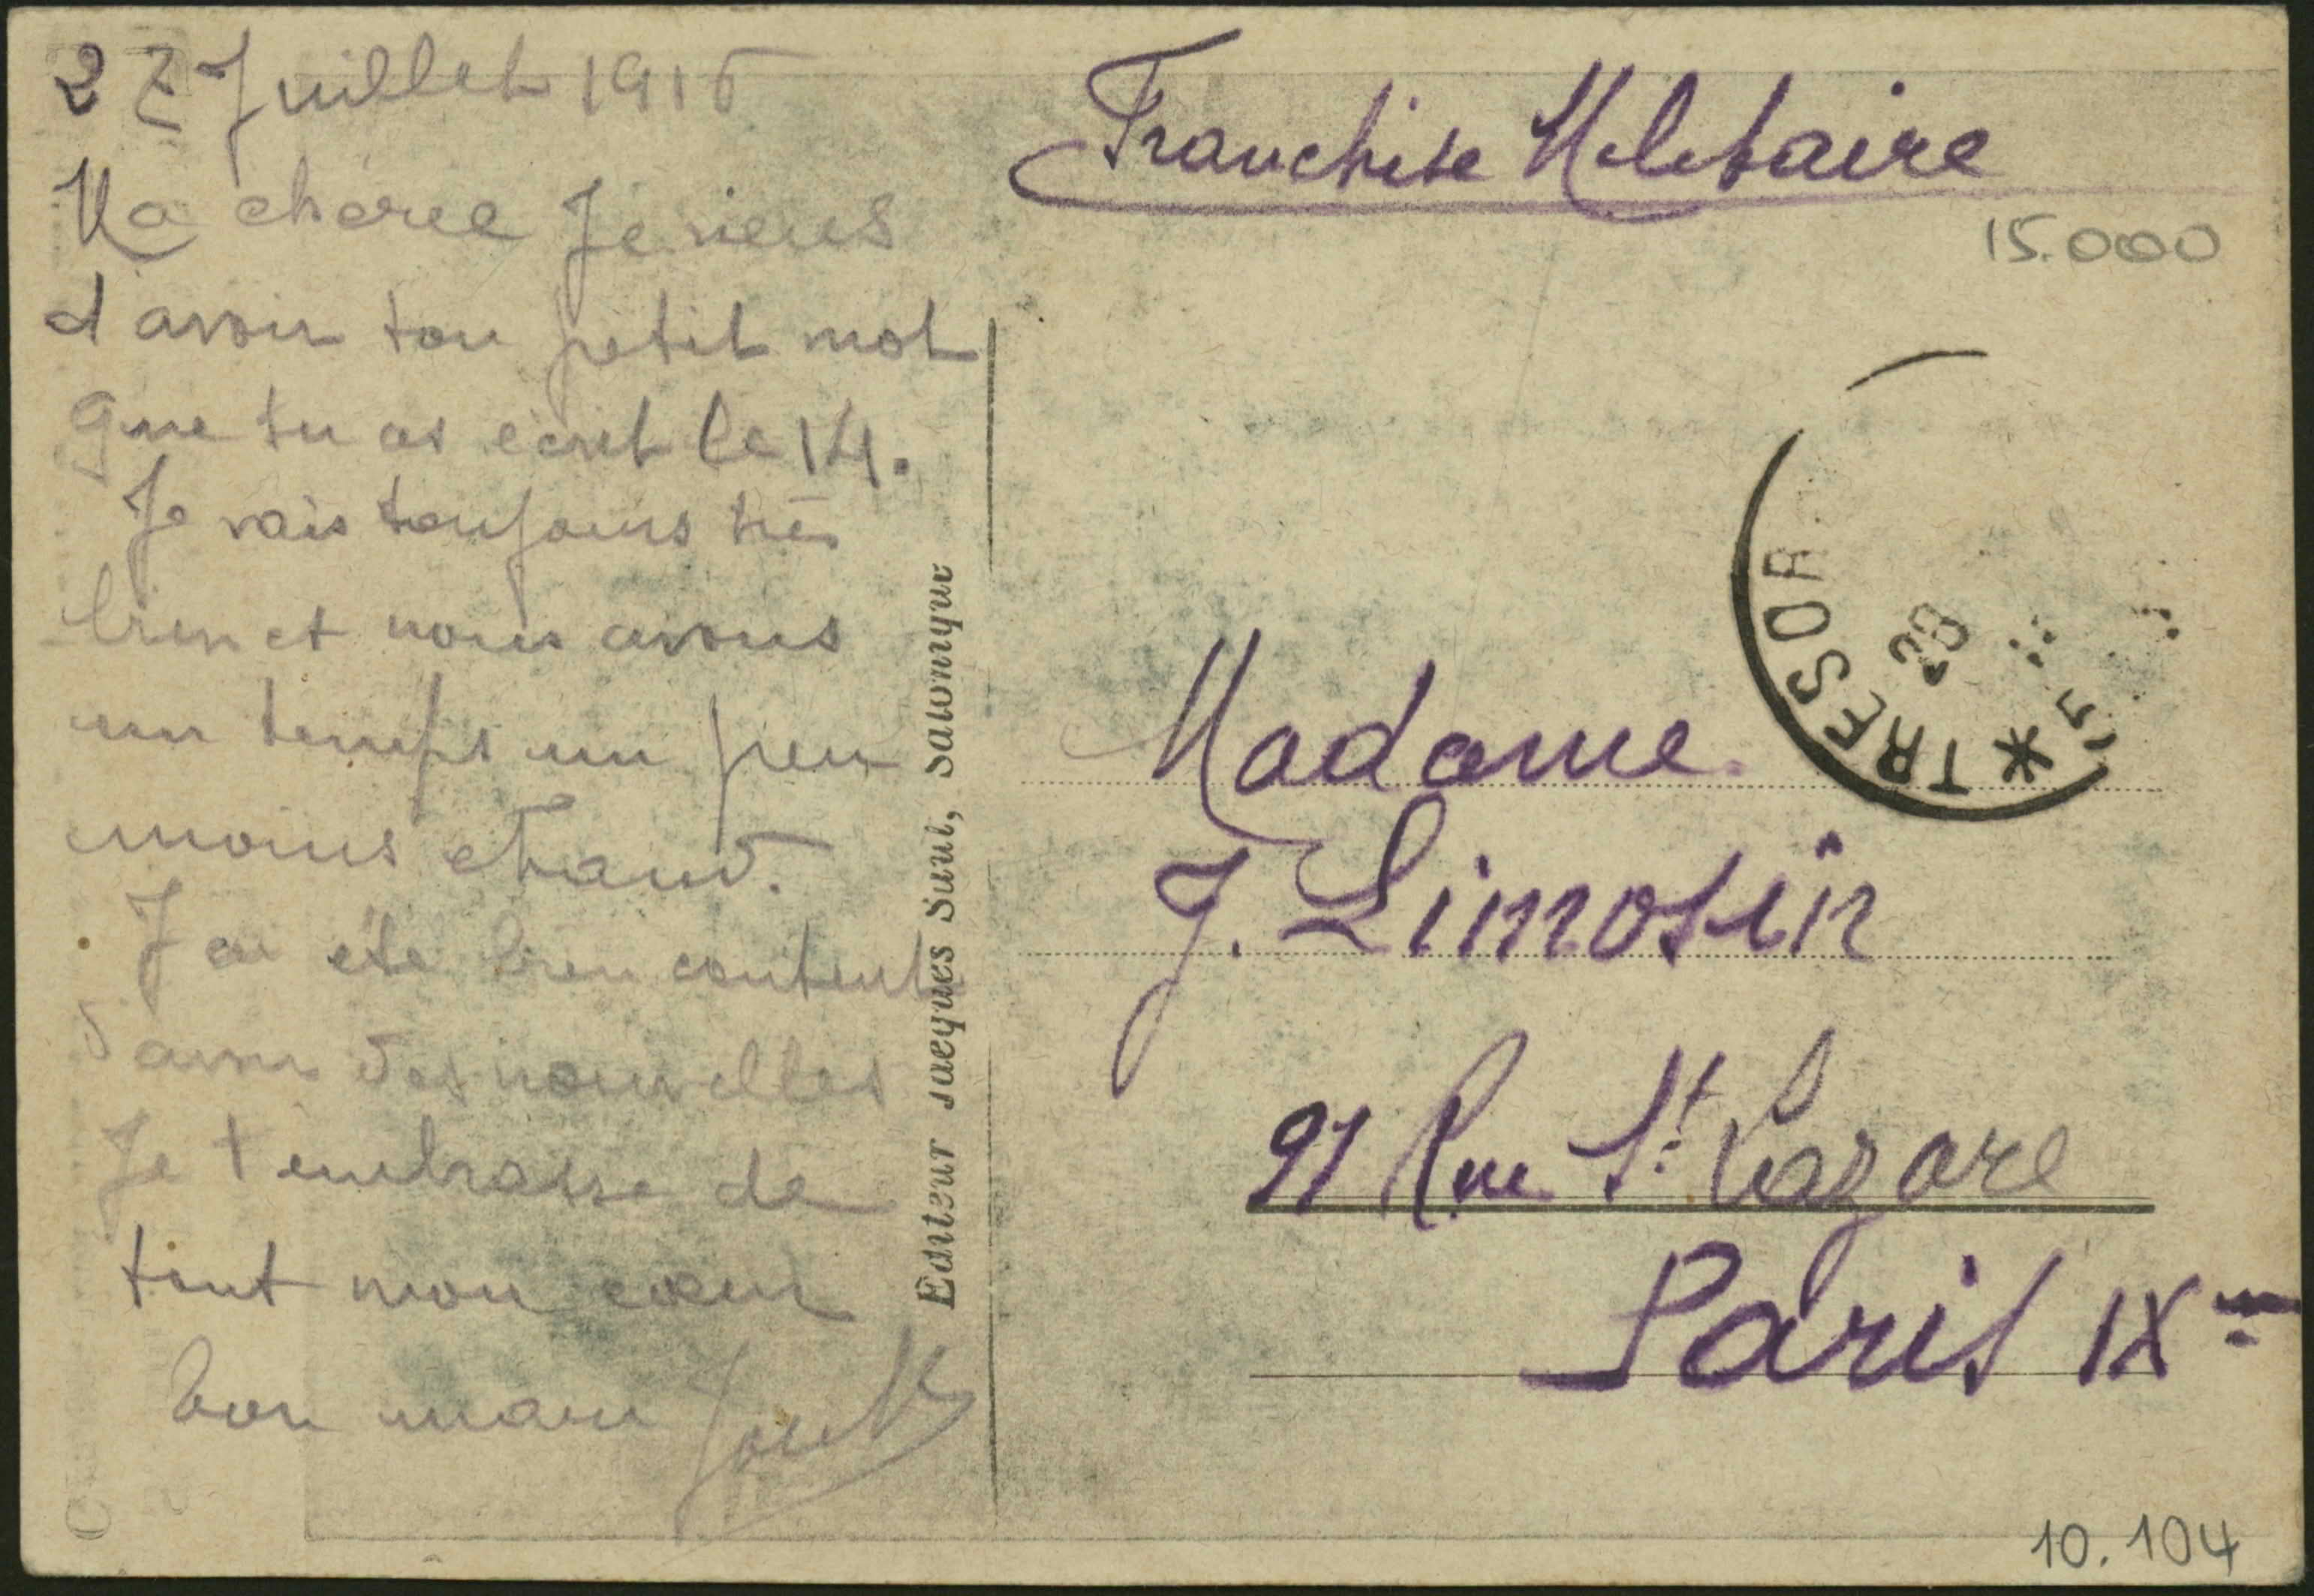 27 Juillet 1916
Ma chéree Je viens
d avoir ton petit mot
que tu as ecrit le 14.
Je vais toujours très
bien et nous avons
un temps un peu
moins chaud.
J ai été bien content
d avoir des nouvelles
Je t embrasse de
tout mon cœur
bon mari
Editeur Jacques Saul, Salonique
Franchise Militaire
15.000
TRESOR
28
*
Madame
J. Limosin
91 Rue St. Lazare
Paris IXme
10.104